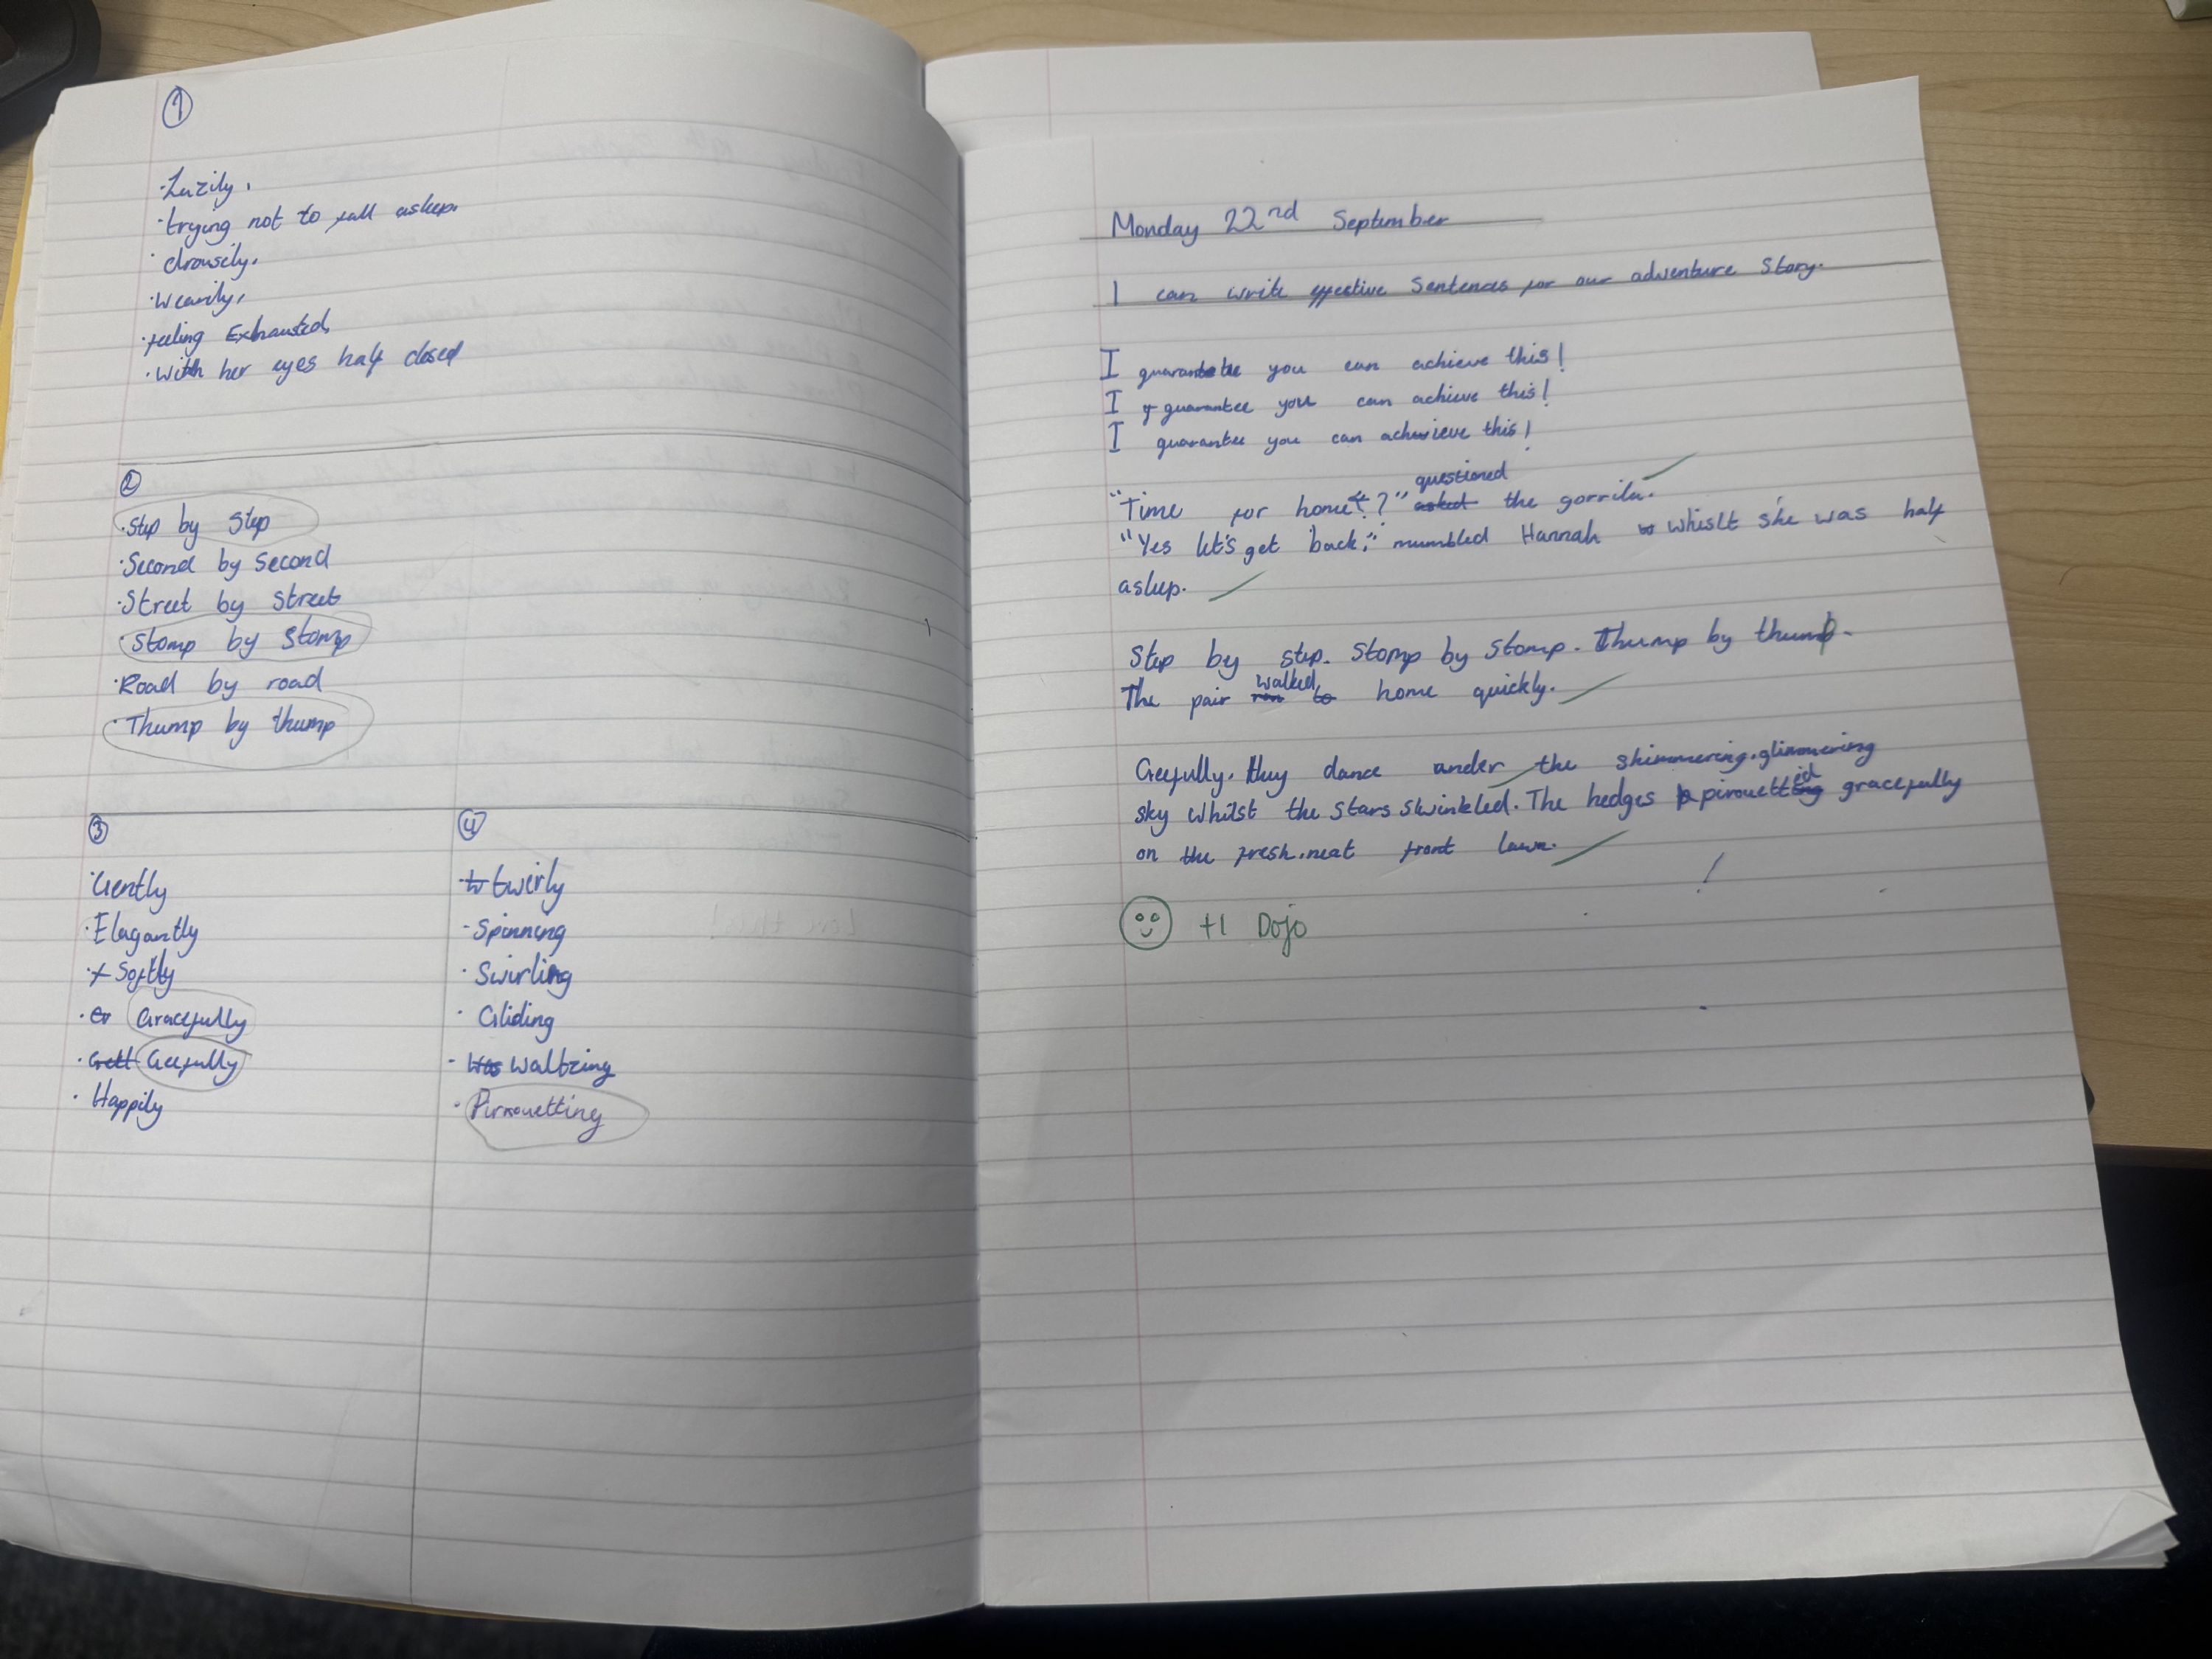 1
·Lazily,
·trying not to fall asleep.
·drousily,
·Wearily,
·feeling Exhausted,
·with her eyes half closed
2
·Step by step
·Second by second
·Street by street
·Stomp by stomp
·Road by road
·Thump by thump
3
·Gently
·Elagantly
·Softly
·Gracefully
·Geefully
·Happily
4
·twirly
·Spinning
·Swirling
·Gliding
·waltzing
·Pirxouetting
Monday 22nd September
I can write effective sentences for our adventure story.
I guarantee you can achieve this!
I guarantee you can achieve this!
I guarantee you can achieve this!
questioned
"Time for home?" asked the gorrila.
"Yes let's get back," mumbled Hannah whislt she was half
asleep.
Step by step. Stomp by stomp. Thump by thump.
The pair walked home quickly.
Geefully, they dance under the shimmering, glimmering
sky whilst the stars swinkled. The hedges pirouetted gracefully
on the fresh, neat front lawn.
+1 Dojo